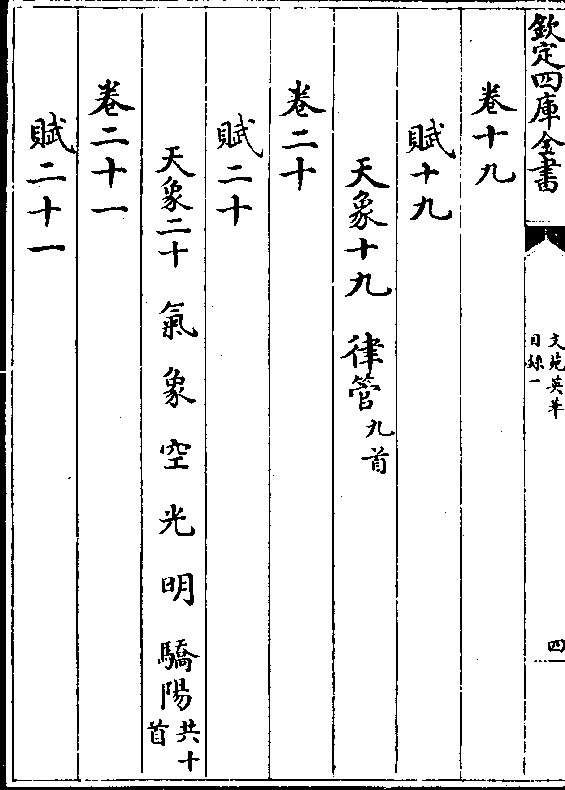 欽定四庫全書
文苑英華
目録一
四
卷十九
賦十九
天象十九 律管九首
卷二十
賦二十
天象二十 氣 象 空 光 明 驕陽共十首
卷二十一
賦二十一